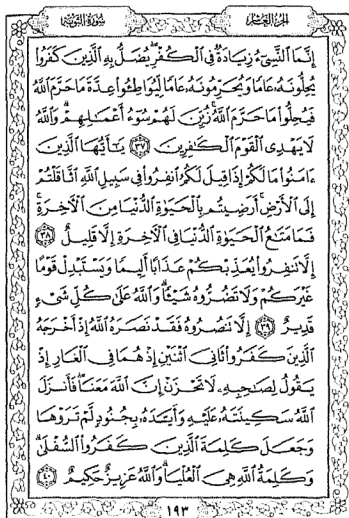 الجزء العاشر
سورة التوبة
إِنَّمَا ٱلنَّسِىٓءُ زِيَادَةٌ فِى ٱلْكُفْرِ يُضَلُّ بِهِ ٱلَّذِينَ كَفَرُوا۟
يُحِلُّونَهُۥ عَامًا وَيُحَرِّمُونَهُۥ عَامًا لِّيُوَاطِـُٔوا۟ عِدَّةَ مَا حَرَّمَ ٱللَّهُ
فَيُحِلُّوا۟ مَا حَرَّمَ ٱللَّهُ زُيِّنَ لَهُمْ سُوٓءُ أَعْمَٰلِهِمْ وَٱللَّهُ
لَا يَهْدِى ٱلْقَوْمَ ٱلْكَٰفِرِينَ ٣٧ يَٰٓأَيُّهَا ٱلَّذِينَ
ءَامَنُوا۟ مَا لَكُمْ إِذَا قِيلَ لَكُمُ ٱنفِرُوا۟ فِى سَبِيلِ ٱللَّهِ ٱثَّاقَلْتُمْ
إِلَى ٱلْأَرْضِ أَرَضِيتُم بِٱلْحَيَوٰةِ ٱلدُّنْيَا مِنَ ٱلْءَاخِرَةِ
فَمَا مَتَٰعُ ٱلْحَيَوٰةِ ٱلدُّنْيَا فِى ٱلْءَاخِرَةِ إِلَّا قَلِيلٌ ٣٨
إِلَّا تَنفِرُوا۟ يُعَذِّبْكُمْ عَذَابًا أَلِيمًا وَيَسْتَبْدِلْ قَوْمًا
غَيْرَكُمْ وَلَا تَضُرُّوهُ شَيْـًٔا وَٱللَّهُ عَلَىٰ كُلِّ شَىْءٍ
قَدِيرٌ ٣٩ إِلَّا تَنصُرُوهُ فَقَدْ نَصَرَهُ ٱللَّهُ إِذْ أَخْرَجَهُ
ٱلَّذِينَ كَفَرُوا۟ ثَانِىَ ٱثْنَيْنِ إِذْ هُمَا فِى ٱلْغَارِ إِذْ
يَقُولُ لِصَٰحِبِهِۦ لَا تَحْزَنْ إِنَّ ٱللَّهَ مَعَنَا فَأَنزَلَ
ٱللَّهُ سَكِينَتَهُۥ عَلَيْهِ وَأَيَّدَهُۥ بِجُنُودٍ لَّمْ تَرَوْهَا
وَجَعَلَ كَلِمَةَ ٱلَّذِينَ كَفَرُوا۟ ٱلسُّفْلَىٰ
وَكَلِمَةُ ٱللَّهِ هِىَ ٱلْعُلْيَا وَٱللَّهُ عَزِيزٌ حَكِيمٌ ٤٠
١٩٣